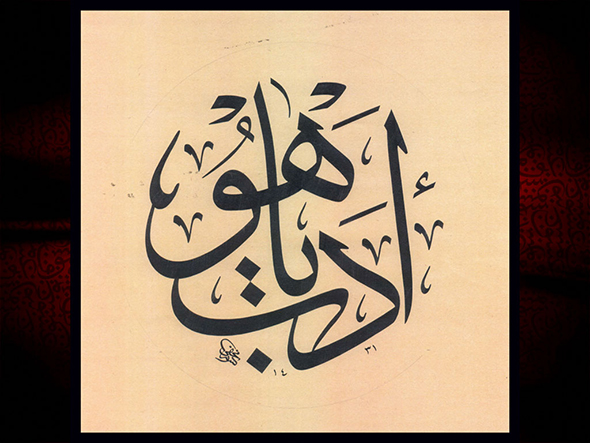 أدَب يا هُو
١٤ ٣١